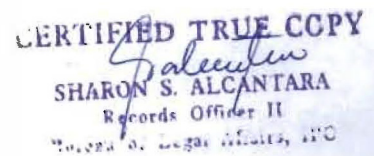 CERTIFIED TRUE COPY
SHARON S. ALCANTARA
Records Officer II
Bureau of Legal Affairs, IPO